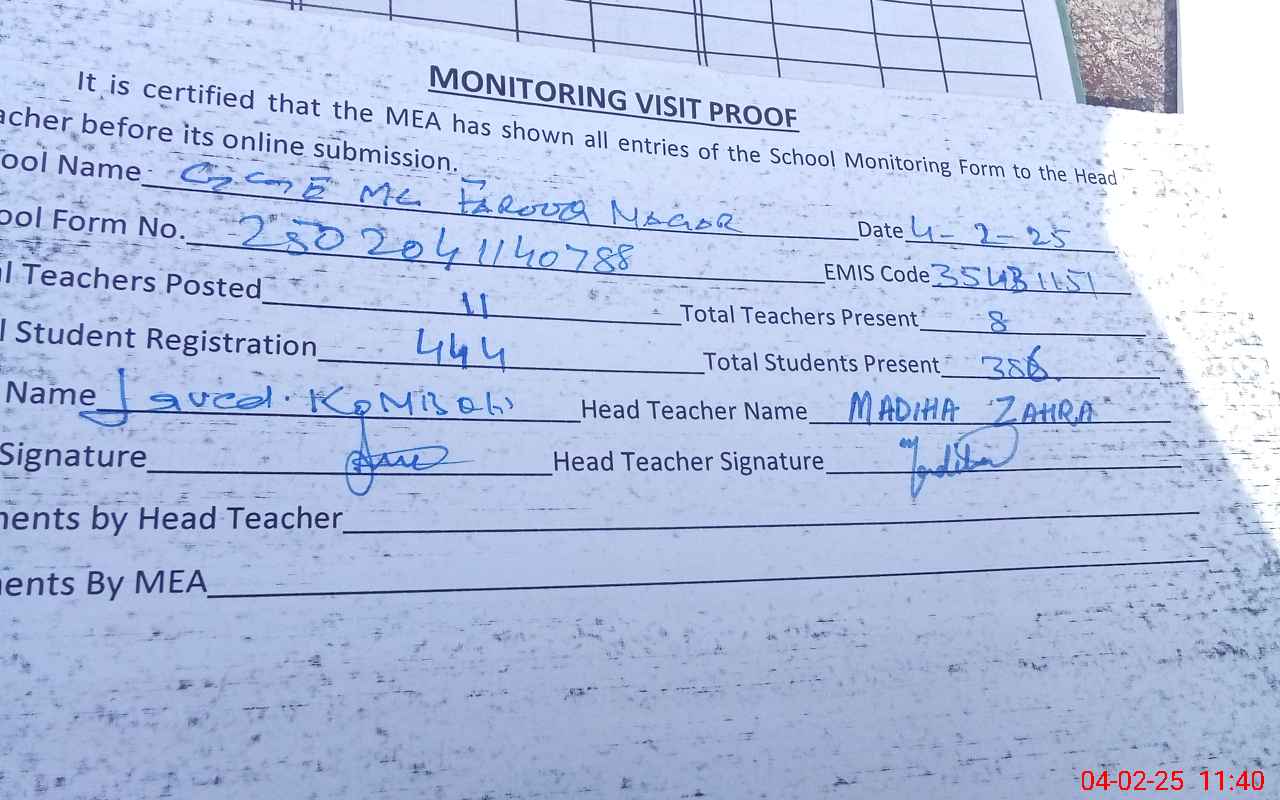 MONITORING VISIT PROOF
It is certified that the MEA has shown all entries of the School Monitoring Form to the Head
acher before its online submission.
ool Name MC FAROOQ NAGAR Date 4-2-25
ool Form No. 2502041140788 EMIS Code 35431151
l Teachers Posted 11 Total Teachers Present 8
l Student Registration 444 Total Students Present 386
Name Javed Head Teacher Name MADIHA ZAHRA
Signature Head Teacher Signature
ents by Head Teacher
ents By MEA
04-02-25 11:40